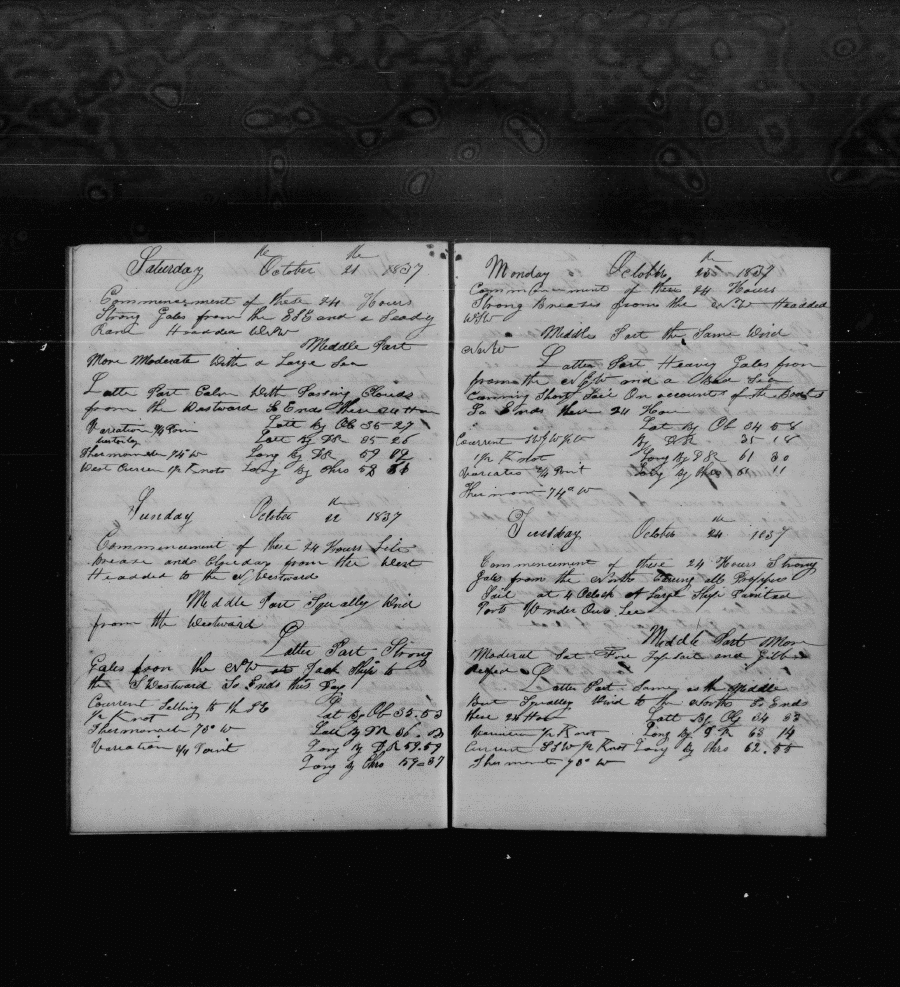 Saturday October 21 th 1837
Commensement of these 24 Hours
Strong Gales from the ESE and a Steady
Rane Headded WSW
Middle Part
More Moderate With a Large Sea
Latter Part Calm With Passing Clouds
from the Westward So Ends these 24 Hour
Variation 3/4 Poin Latt by Ob 35-27
westerly Latt by DR 35 26
Thermometer 74° W Long by DR 59 02
West Curren 1/2 Knots Long by Chro 58
Sunday October 22 th 1837
Commencement of these 24 Hours Lite
Brease and from the West
Headded to the N Westward
Middle Part Squally Wind
from the Westward
Latter Part Strong
Gales from the NW at Tack Ship to
the S Westward So Ends this Day
Current Setting to the SE
1/2 Knot Lat by Ob 35.53
Thermometer 73° W Latt by DR 36
Variation 3/4 Point Long by DR 59.59
Long by Chro 59=37
Monday October 23 th 1837
Commencement of these 24 Hours
Strong Breases from the NW Headded
WSW
Middle Part the Same Wind
NNW
Latter Part Heavy Gales from
from the NNW and a Bad Sea
Carrying Short Sail On account of the Boats
So Ends these 24 Hour
Lat by Ob 34 58
Current by DR 35 18
1/2 Knot Long by DR 61 30
Variation 3/4 Point Long by Chro 11
Thermom 74° W
Tuesday October 24 th 1837
Commencement of these 24 Hours Strong
Gales from the North Carring all
Sail at 4 Oclock a Large Ship Painted
Ports Under Our Lee
Middle Part More
Moderat Set Fore Topsail and Gibb
Latter Part Same as the Middle
But Squalley Wind to the North So Ends
these 24 Hour Latt by Ob 34 33
1/2 Knot Long by DR 63 14
Current SSW 1/2 Knot Long by Chro 62.55
Thermomete 73° W